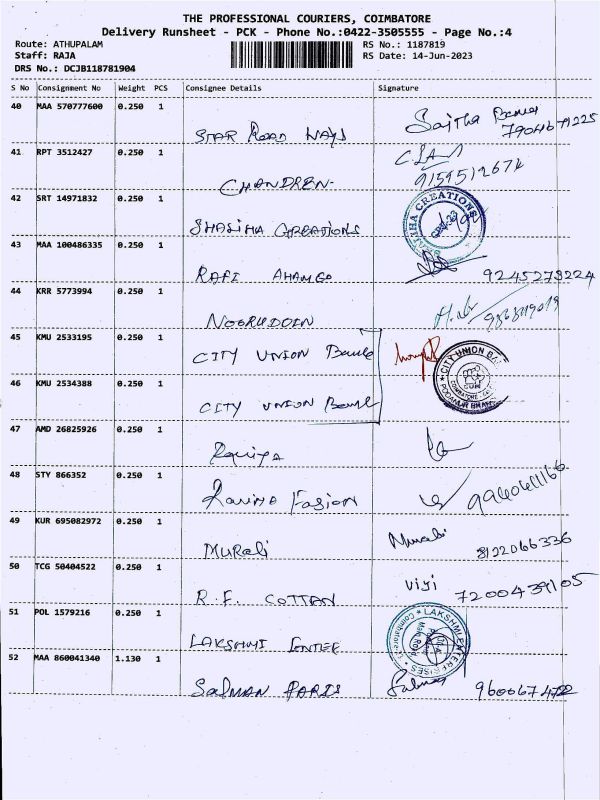 THE PROFESSIONAL COURIERS, COIMBATORE
Delivery Runsheet - PCK - Phone No.:0422-3505555 - Page No.:4
Route: ATHUPALAM RS No.: 1187819
Staff: RAJA RS Date: 14-Jun-2023
DRS No.: DCJB118781904
S No Consignment No Weight PCS Consignee Details Signature
40 MAA 570777600 0.250 1
STAR Road WAYS Sajtha
41 RPT 3512427 0.250 1
CHANDREN 9159512674
42 SRT 14971832 0.250 1
SHASIHA CREATIONS
43 MAA 100486335 0.250 1
RAFI AHAMED 9245278224
44 KRR 5773994 0.250 1
NOORUDDIN
45 KMU 2533195 0.250 1
CITY UNION Bank
CITY UNION
46 KMU 2534388 0.250 1
CITY UNION Bank
47 AMD 26825926 0.250 1
48 STY 866352 0.250 1
Fasion
49 KUR 695082972 0.250 1
MURali Murali 8122066336
50 TCG 50404522 0.250 1
R.F. COTTAN Viji 7200439105
51 POL 1579216 0.250 1
LAKSHMI ENTER LAKSHMI ENTERPRISES
52 MAA 860041340 1.130 1
SalMAN PARIS